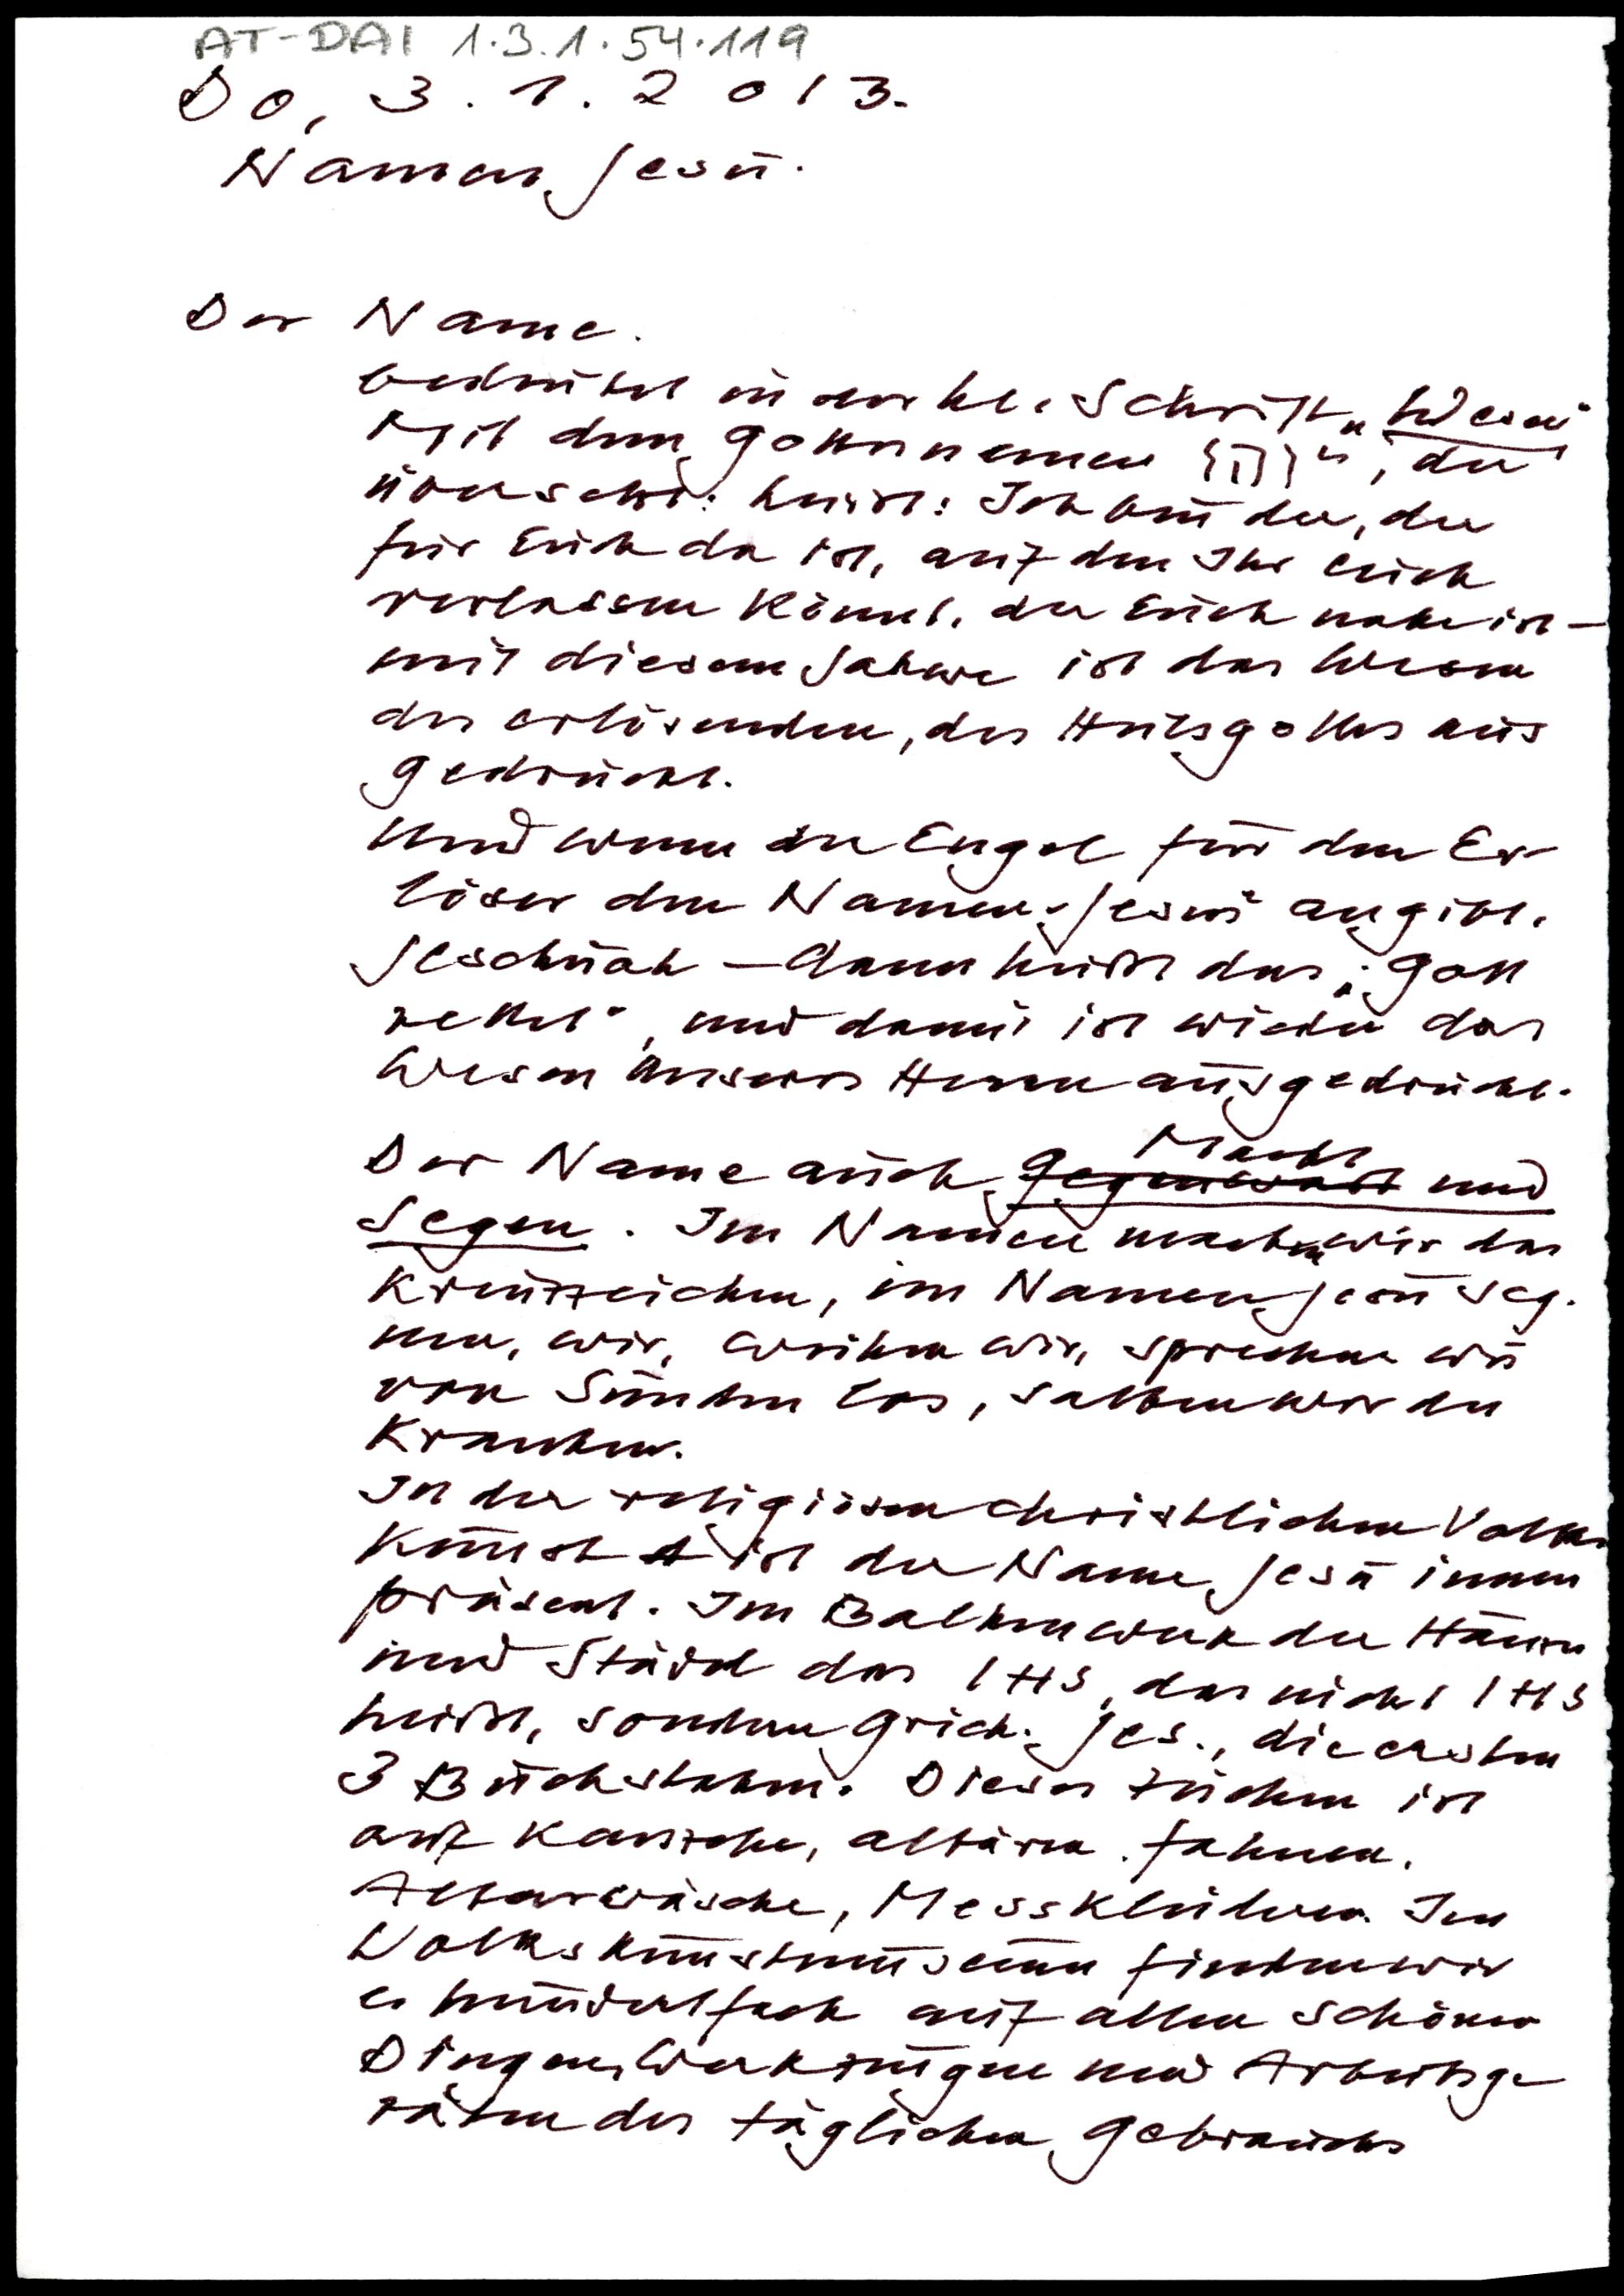 AT-DAI 1.3.1.54.119
Do, 3.1.2013.
Namen Jesu.
Der Name.
bedeutet in der hl. Schrift „Wesen"
Mit dem Gottesnamen , der
übersetzt: heisst: Ich bin der, der
für Euch da ist, auf den Ihr euch
verlassen könnt, der Euch nahe ist –
mit diesem Jahwe ist das Wesen
des erlösenden, des Heilsgottes aus
gedrückt.
Und wenn der Engel für den Er-
löser den Namen Jesus angibt,
Jeschuah – dann heißt das: „Gott
rettet", und damit ist wieder das
Wesen unseres Herrn ausgedrückt.
Der Name auch Gegenwart Macht und
Segen. Im Namen machen wir das
Kreuzzeichen, im Namen Jesu seg-
nen, wir, weihen wir, sprechen wir
von Sünden los, salben wir die
Kranken.
In der religiösen christlichen Volks
kunst ist der Name Jesu immer
präsent. Im Balkenwerk der Häuser
und Städel das IHS, das nicht IHS
heißt, sondern griech. Jes., die ersten
3 Buchstaben. Dieses Zeichen ist
auf Kanzeln, Altären, Fahnen,
Altarwäsche, Messkleidern. Im
Volkskunstmuseum finden wir
es hundertfach auf allen schönen
Dingen, Werkzeugen und Arbeitsge-
räten des täglichen Gebrauchs